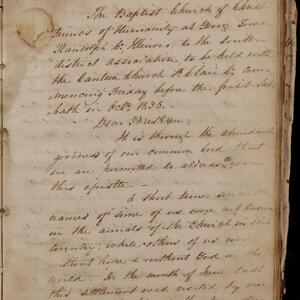 The Baptist Church of Christ
friends of Humanity at
Randolph Co. Illinois, to the south
district association, to be held with
the Canton Church St Clair Co. com
mencing Friday before the first Sab
bath in Octr. 1836.
Dear Brethren,
It is through the abundant
goodness of our common Lord that
we are permitted to address
this epistle.
A short time since the
names of some of us were not known
in the annals of the Church in this
Country; while others of us were
without hope & without God in the
world. In the month of June last
this settlement was visited by one